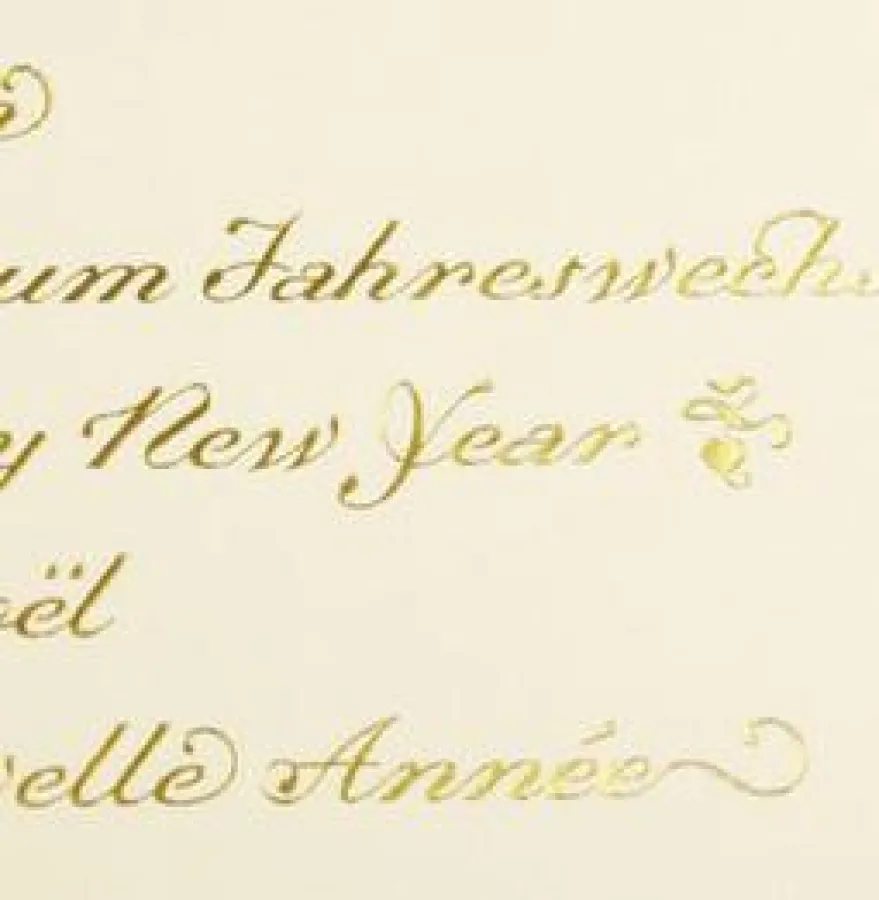 um Jahreswechs
y New Year
ël
elle Année